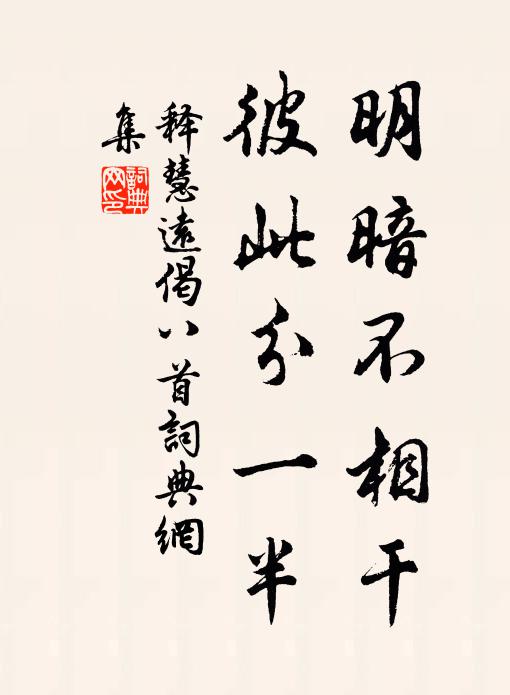 明暗不相干
彼此分一半
释慧遠偈八首詞典網
集
詞典
网印